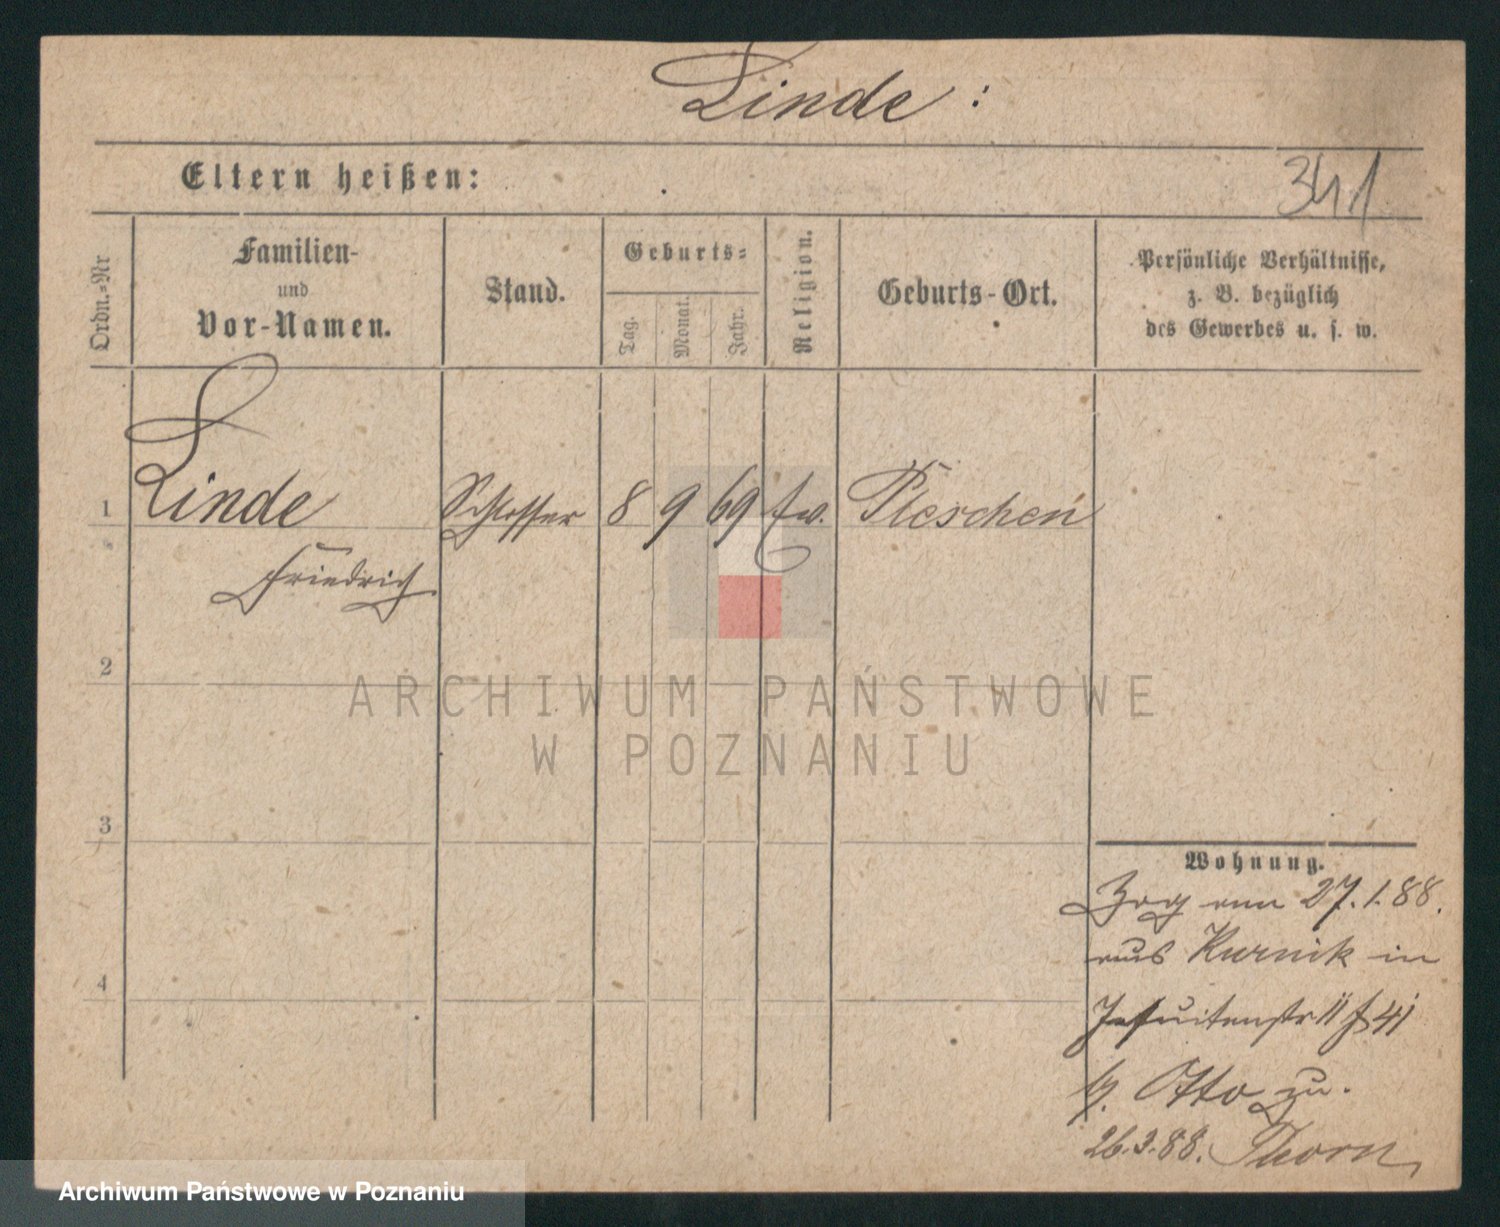 Linde :
Eltern heißen:
341
Ordn.-Nr
Familien-
und
Vor-Namen.
Stand.
Geburts-
Tag.
Monat.
Jahr.
Religion.
Geburts-Ort.
Persönliche Verhältnisse,
z. B. bezüglich
des Gewerbes u. s. w.
1 Linde Schlosser 8 9 69 ev. Pleschen
Friedrich
2
ARCHIWUM PAŃSTWOWE
W POZNANIU
3
4
Wohnung.
Zog am 27.1.88.
aus Kurnik in
Jesuitenstr 11
b. Otto zu.
26.3.88. Thorn
Archiwum Państwowe w Poznaniu